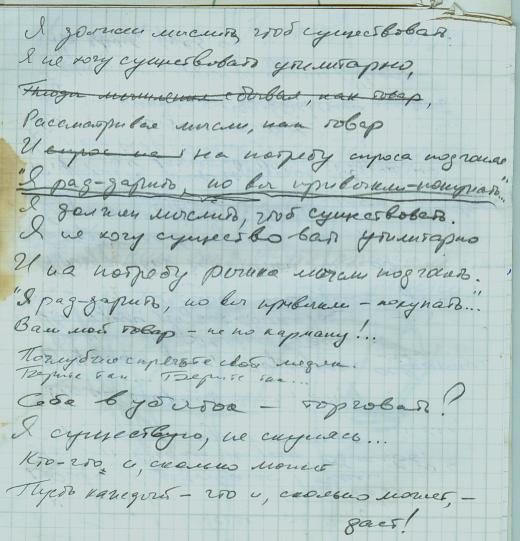 Я должен мыслить, чтоб существовать.
Я не хочу существовать утилитарно,
Плоды мышления сбывая, как товар,
Рассматривая мысли, как товар
И спрос на на потребу спроса подгоняя
"Я рад-дарить, но вы привыкли-покупать..."
Я должен мыслить, чтоб существовать.
Я не хочу существовать утилитарно
И на потребу рынка мысли подгонять.
"Я рад-дарить, но вы привыкли - покупать..."
Вам мой товар - не по карману!...
Поглубже спрячьте свои медяки.
Берите так Берите так...
Себе в убыток - торговать?
Я существую, не скупясь...
Кто-что, и, сколько может
Пусть каждый - что и, сколько может, -
даст!